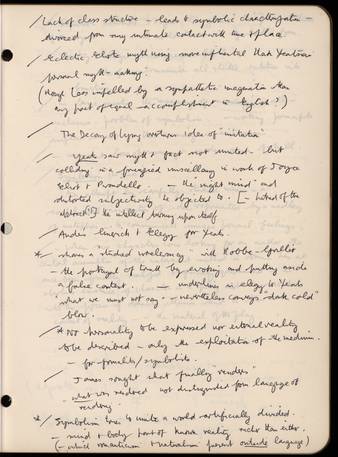 / Lack of class structure – leads to symbolic characterization –
divorced from any intimate contact with time & place.
/ Eclectic, Eliot's myth using more influential than Yeatsian
personal myth-making.
( less impelled by a sympathetic imagination than
any poet of equal accomplishment in English ? )
/ The Decay of Lying overturns idea of "imitation"
/ Yeats saw myth & fact not united – but
colliding in a miscellany in work of Joyce
Eliot & Pirandello – the "night mind" and
distorted subjectivity he objected to. [– hatred of the
abstract [?] the intellect turning upon itself
/ Auden Limerick & Elegy for Yeats.
* / shares a studied with Robbe-Grillet
– the portrayal of truth by evoking and putting aside
a false context. – underlines in elegy to Yeats
what we must not say – nevertheless conveys "dark cold"
blow.
/ * No personality to be expressed nor external reality
to be described – only the exploitation of the medium.
– for formalists/symbolists.
/ James sought what finally "renders"
– what was rendered not distinguished from language of
rendering.
* / Symbolism tries to unite a world artificially divided.
– mind & body part of known reality rather than either.
(– which romanticism & naturalism present outside language)